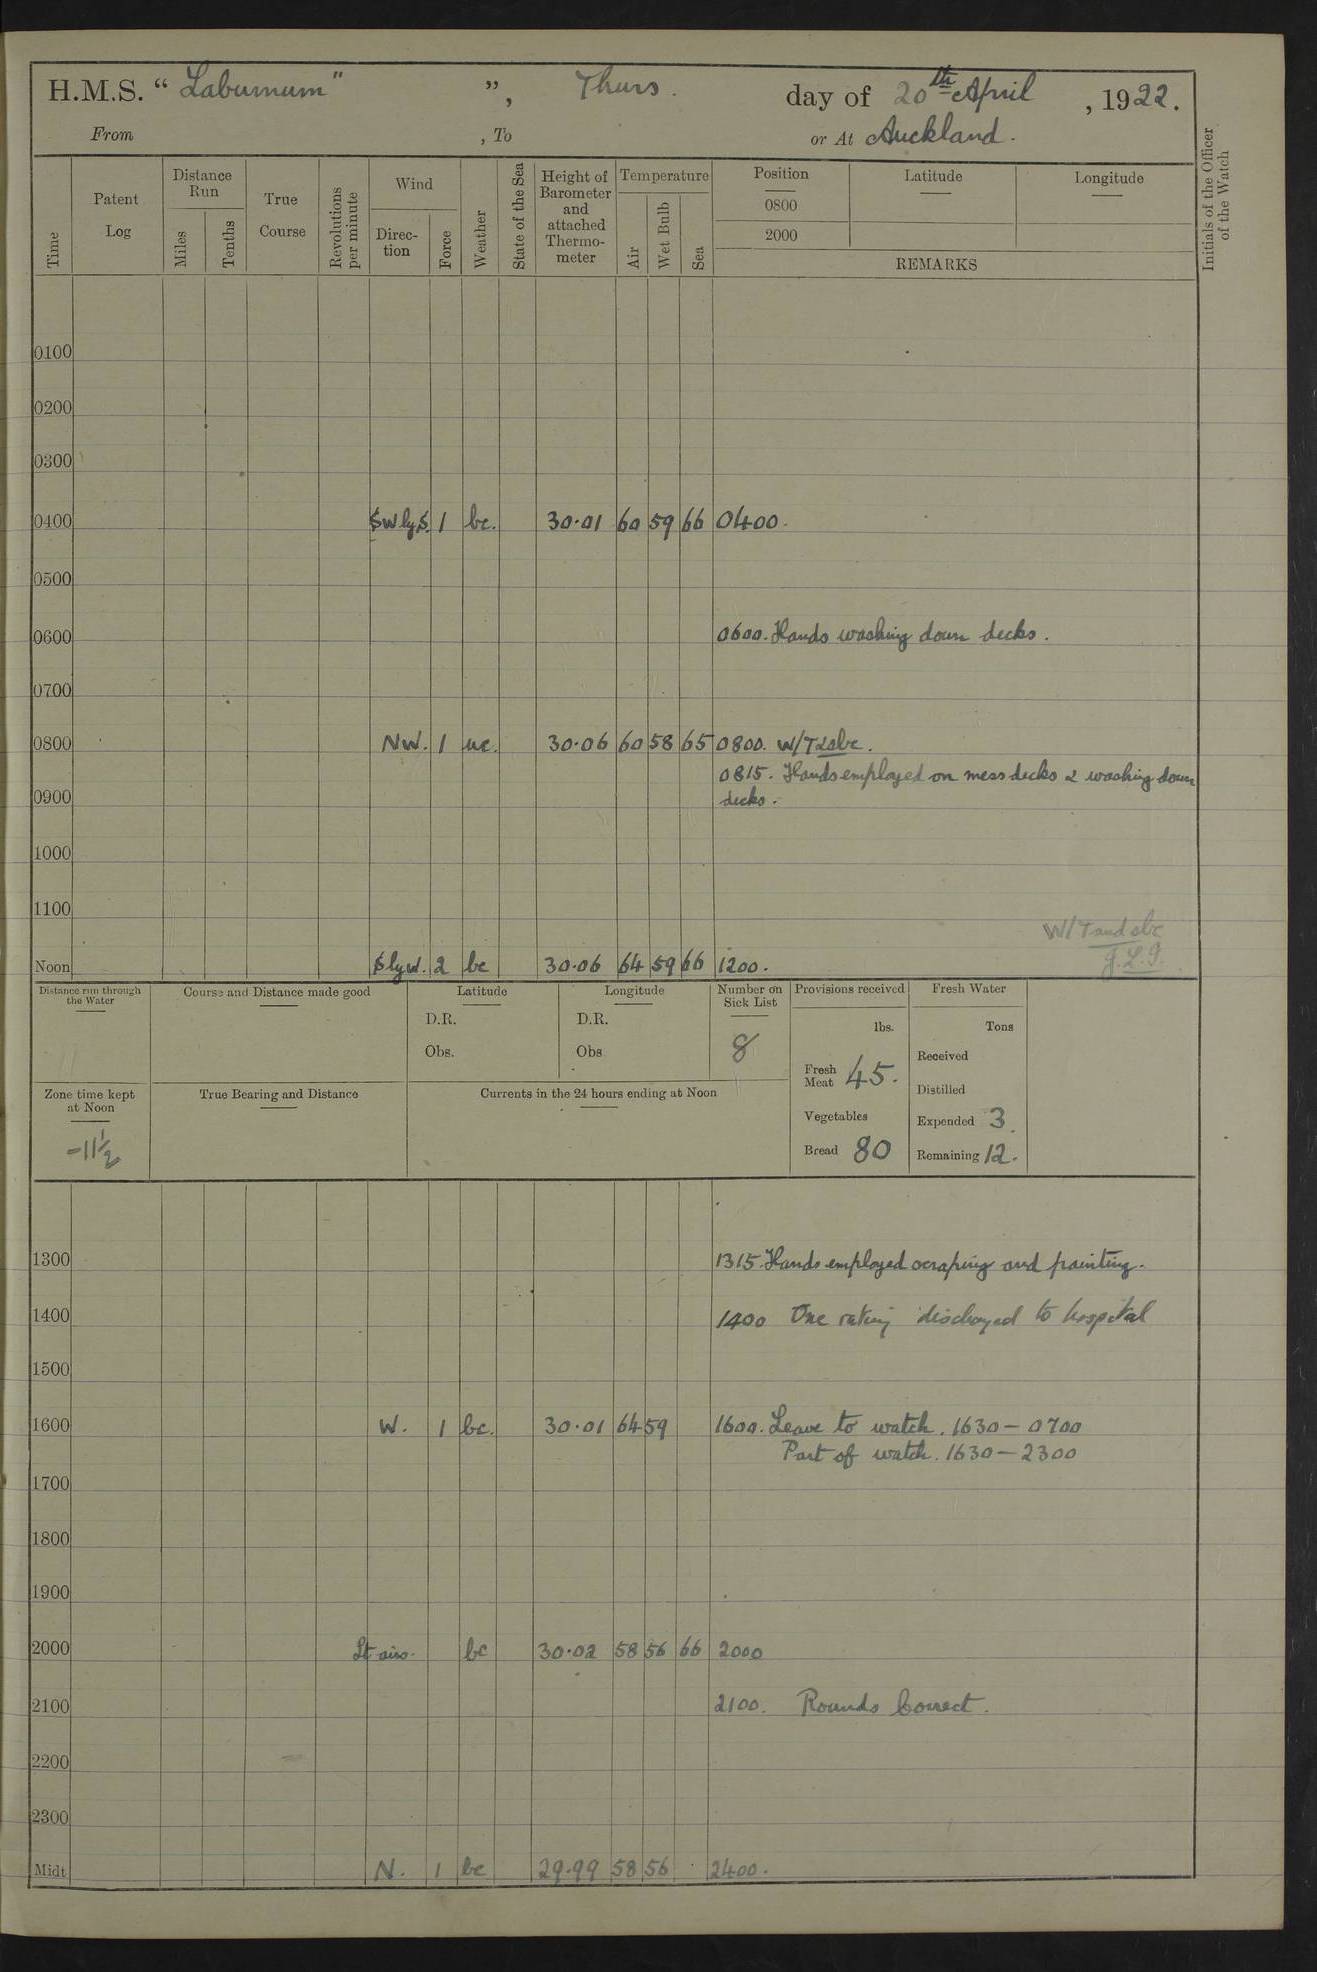 H.M.S. “ Laburnum” ”, Thurs. day of 20th April , 1922.
From , To or At Auckland.
Time
Patent Log
Distance Run
Miles
Tenths
True Course
Revolutions per minute
Wind
Direction
Force
Weather
State of the Sea
Height of Barometer and attached Thermometer
Temperature
Air
Wet Bulb
Sea
Position Latitude Longitude
0800
2000
REMARKS
Initials of the Officer of the Watch
0100
0200
0300
0400 1 bc. 30.01 60 59 66 0400.
0500
0600 0600. Hands washing down decks.
0700
0800 NW. 1 30.06 60 58 65 0800. W/T
0815. Hands employed on mess decks & washing down
0900 decks.
1000
1100
W/T and
J.L.G.
Noon 2 bc 30.06 64 59 66 1200.
Distance run through the Water
Course and Distance made good
Latitude
D.R.
Obs.
Longitude
D.R.
Obs
Number on Sick List
8
Provisions received
lbs.
Fresh Meat 45.
Vegetables
Bread 80
Fresh Water
Tons
Received
Distilled
Expended 3.
Remaining 12.
Zone time kept at Noon
-11½
True Bearing and Distance
Currents in the 24 hours ending at Noon
1300 1315. Hands employed scraping and painting.
1400 1400 One rating discharged to hospital
1500
1600 W. 1 bc. 30.01 64 59 1600. Leave to watch. 1630 – 0700
Part of watch. 1630 – 2300
1700
1800
1900
2000 Lt airs. bc 30.02 58 56 66 2000
2100 2100. Rounds Correct.
2200
2300
Midt N. 1 bc 29.99 58 56 2400.